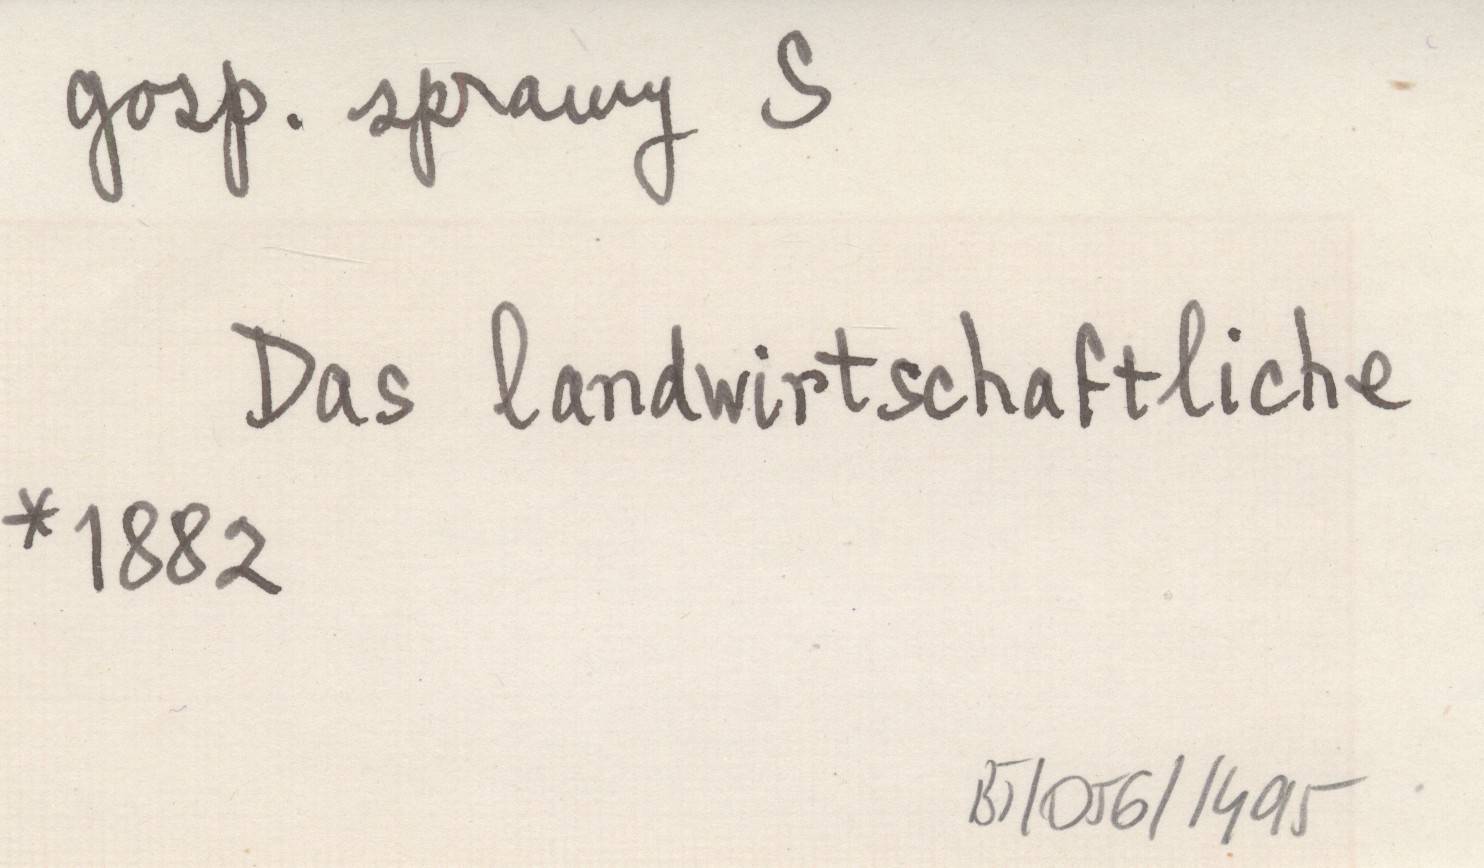 gosp. sprawy S
Das landwirtschaftliche
*1882
BJ/056/1495